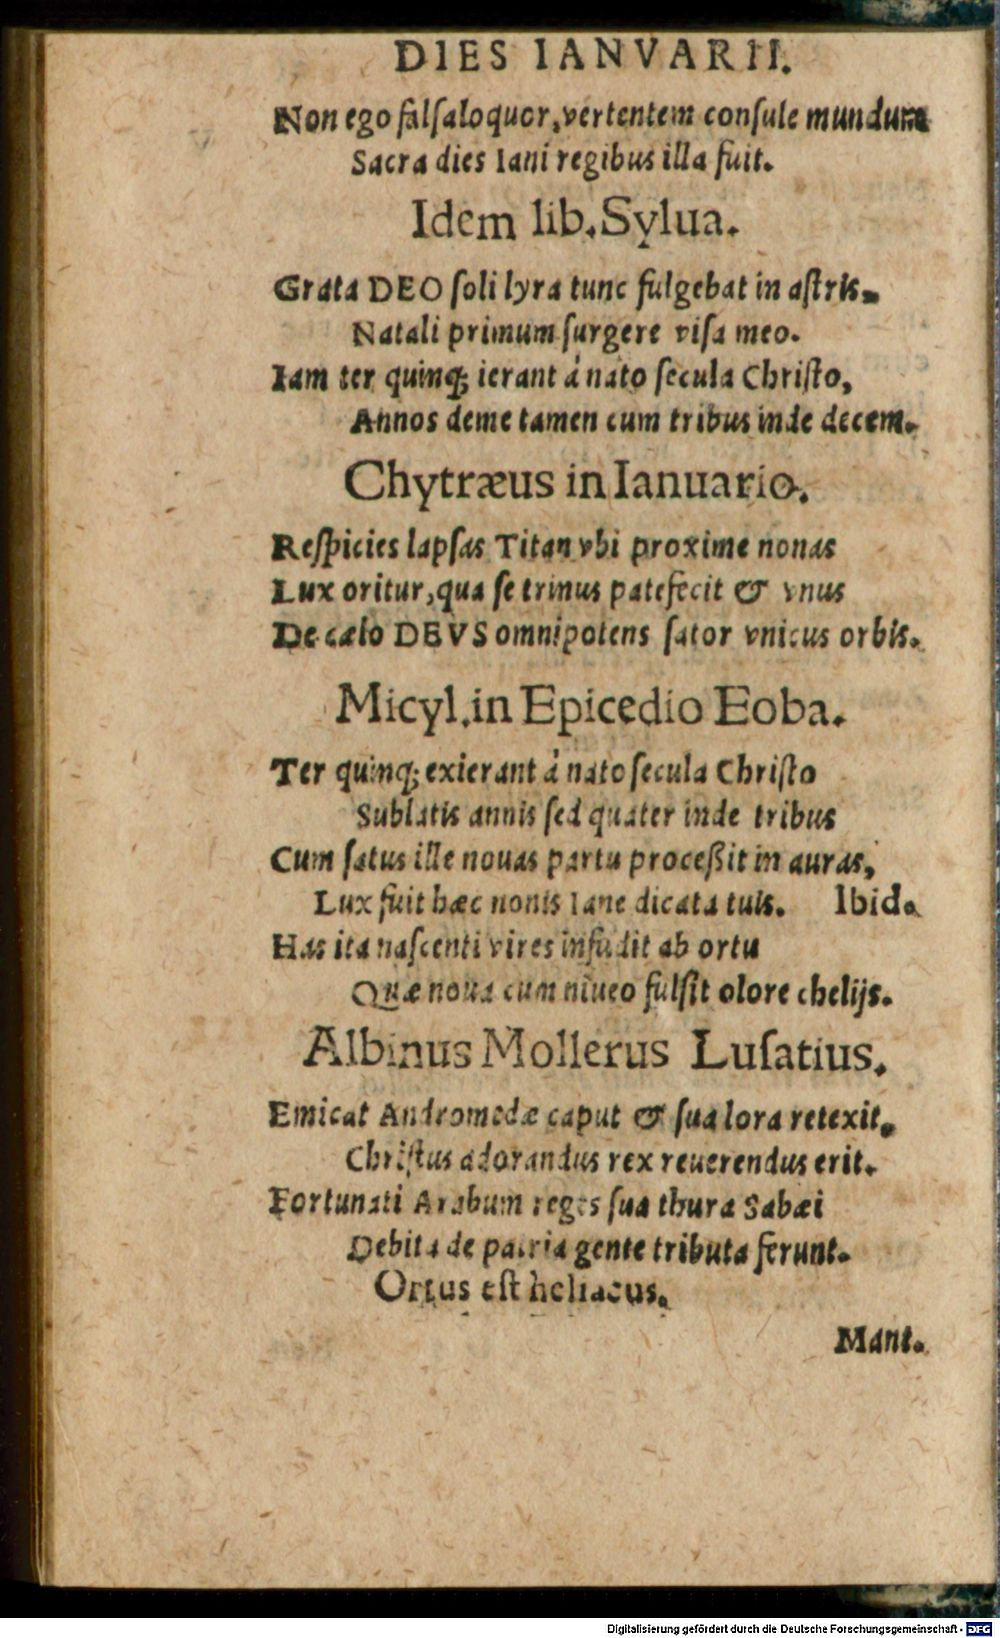 DIES IANVARII.
Non ego falſa loquor, vertentem conſule mundum
Sacra dies Iani regibus illa fuit.
Idem lib. Sylua.
Grata DEO ſoli lyra tunc fulgebat in aſtris.
Natali primum ſurgere viſa meo.
Iam ter quinq; ierant à nato ſecula Chriſto,
Annos deme tamen cum tribus inde decem.
Chytræus in Ianuario.
Reſpicies lapſas Titan vbi proxime nonas
Lux oritur, qua ſe trinus patefecit & vnus
De cælo DEVS omnipotens ſator vnicus orbis.
Micyl. in Epicedio Eoba.
Ter quinq; exierant à nato ſecula Chriſto
Sublatis annis ſed quater inde tribus
Cum ſatus ille nouas partu proceßit in auras,
Lux fuit hæc nonis Iane dicata tuis. Ibid.
Has ita naſcenti vires infudit ab ortu
Quæ noua cum niueo fulſit olore chelijs.
Albinus Mollerus Luſatius.
Emicat Andromedæ caput & ſua lora retexit,
Chriſtus adorandus rex reuerendus erit.
Fortunati Arabum reges ſua thura Sabæi
Debita de patria gente tributa ferunt.
Ortus eſt heliacus.
Mant.
Digitalisierung gefördert durch die Deutsche Forschungsgemeinschaft - DFG